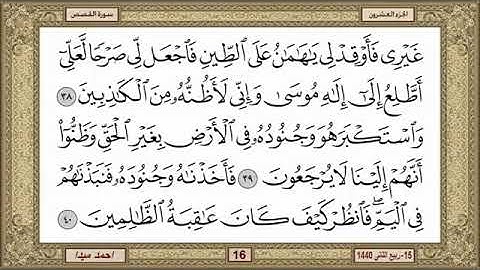 سورة القصص
الجزء العشرون
غَيْرِي فَأَوْقِدْ لِي يَٰهَٰمَٰنُ عَلَى ٱلطِّينِ فَٱجْعَل لِّي صَرْحًا لَّعَلِّيٓ
أَطَّلِعُ إِلَىٰٓ إِلَٰهِ مُوسَىٰ وَإِنِّي لَأَظُنُّهُۥ مِنَ ٱلْكَٰذِبِينَ ٣٨
وَٱسْتَكْبَرَ هُوَ وَجُنُودُهُۥ فِي ٱلْأَرْضِ بِغَيْرِ ٱلْحَقِّ وَظَنُّوٓا۟
أَنَّهُمْ إِلَيْنَا لَا يُرْجَعُونَ ٣٩ فَأَخَذْنَٰهُ وَجُنُودَهُۥ فَنَبَذْنَٰهُمْ
فِي ٱلْيَمِّ ۖ فَٱنظُرْ كَيْفَ كَانَ عَٰقِبَةُ ٱلظَّٰلِمِينَ ٤٠
15- ربيع الثاني 1440
16
احمد ميدا